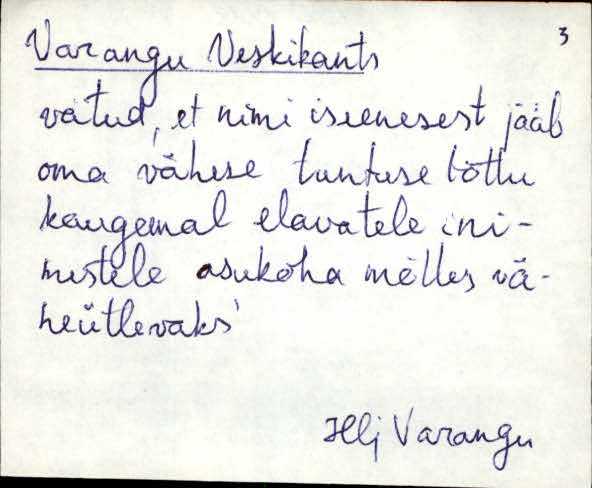 3
Varangu Veskikants
vätud, et nimi iseenesest jääb
oma vähese tuntuse tõttu
kaugemal elavatele ini-
mestele asukoha mõttes vä-
heütlevaks
Hlj Varangu